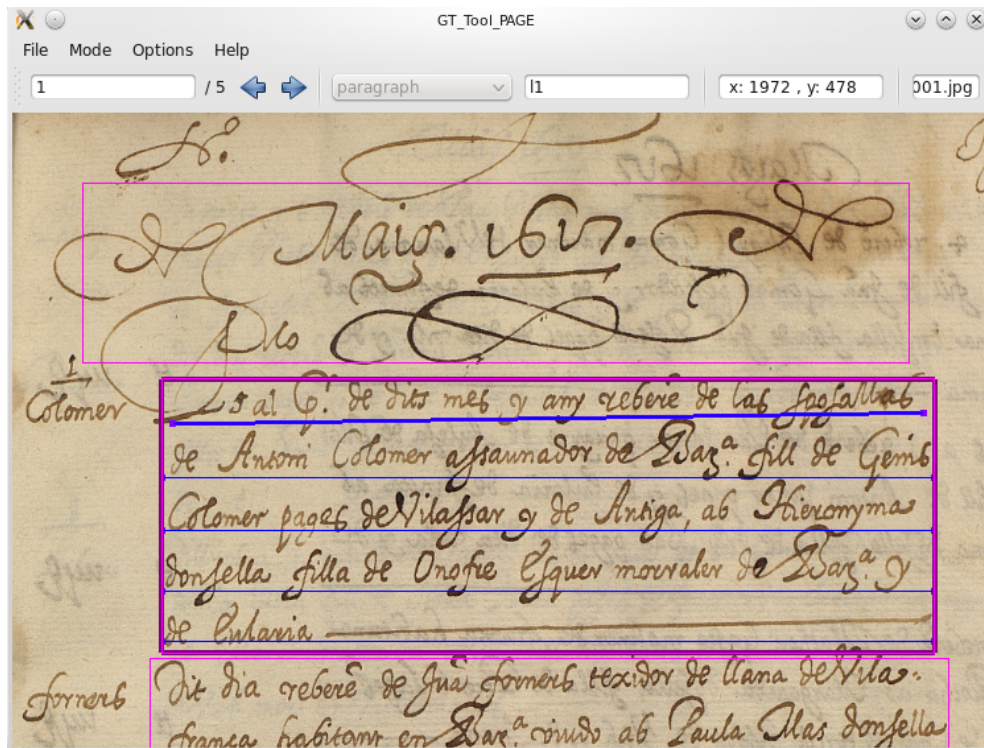 GT_Tool_PAGE
File Mode Options Help
1 / 5 paragraph l1 x: 1972 , y: 478 001.jpg
Maig. 1617.
1
Colomer
al de dits mes, y any reberé de las sposallas
de Antoni Colomer assaunador de Barᵃ. fill de Genis
Colomer pages de Vilassar y de Antiga, ab Hieronyma
donsella filla de Onofre Esquer morraler de Barᵃ. y
de Eularia
forners
Dit dia reberé de Juā forners texidor de llana de Vila-
franca habitant en Barᵃ. viudo ab Paula Mas donsella